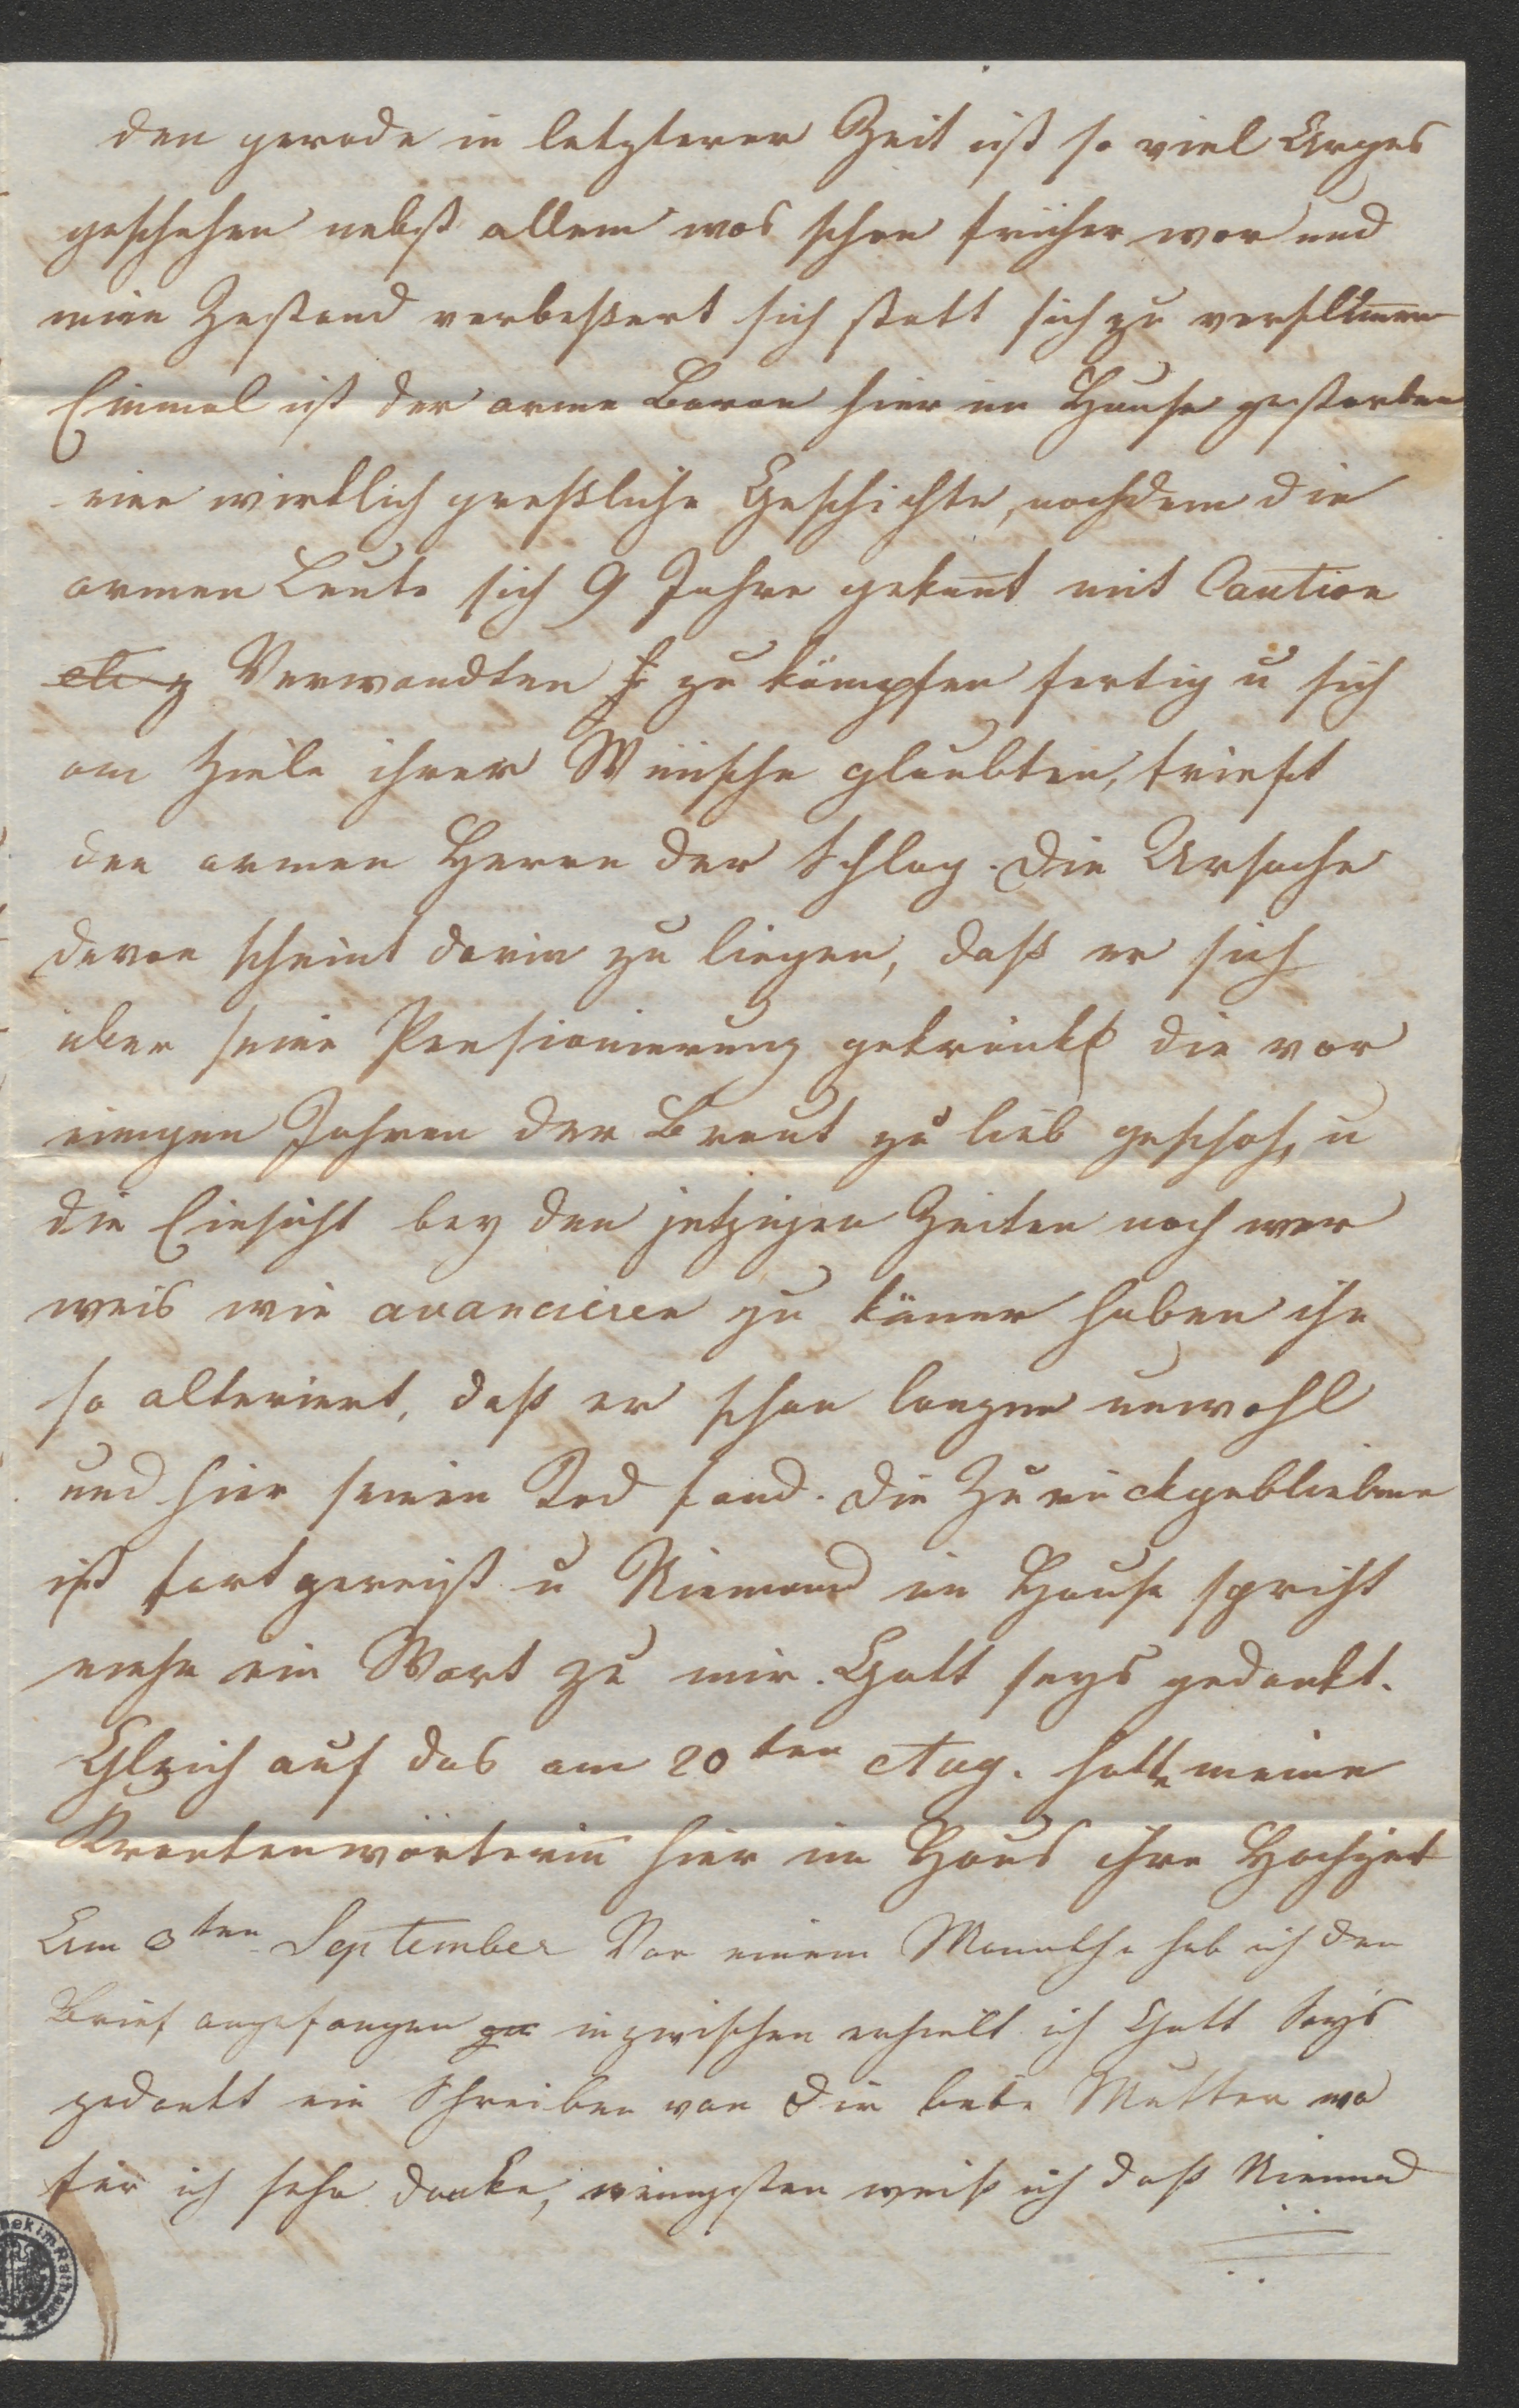 den gerade in letzterer Zeit ist so viel Arges
geschehen nebst allem was schon früher war und
mein Zustand verbeßert sich statt sich zu verschlimern
Einmal ist der arme Baron hier im Hause gestorben
eine wirklich greßliche Geschichte, nachdem die
armen Leute sich 9 Jahre gekant mit Caution
etc Verwandten zu kämpfen fertig u sich
am Ziele ihrer Wünsche glaubten, trieft
den armen Herrn der Schlag. Die Ursache
davon scheint darin zu liegen, daß er sich
über seine Pensionierung gekränkt die vor
einigen Jahren der Braut zu lieb geschah, u
die Einsicht bey den jetzigen Zeiten noch wer
weis wie avancieren zu könen haben ihn
so alteriert, daß er schon lange unwohl
und hier seinen Tod fand. Die Zurückgebliebene
ist fort gereist u Niemand im Hause spricht
mehr ein Wort zu mir. Gott seys gedankt.
Gleich auf das am 20ten Aug. hatte meine
Krankenwärterin hier im Haus ihre Hochzeit
Am 3ten September Vor einem Monathe hab ich den
Brief angefangen inzwischen erhielt ich Gott Seys
gedankt ein Schreiben von Dir liebe Mutter wo
für ich sehr danke, wenigsten weiß ich daß Niemand